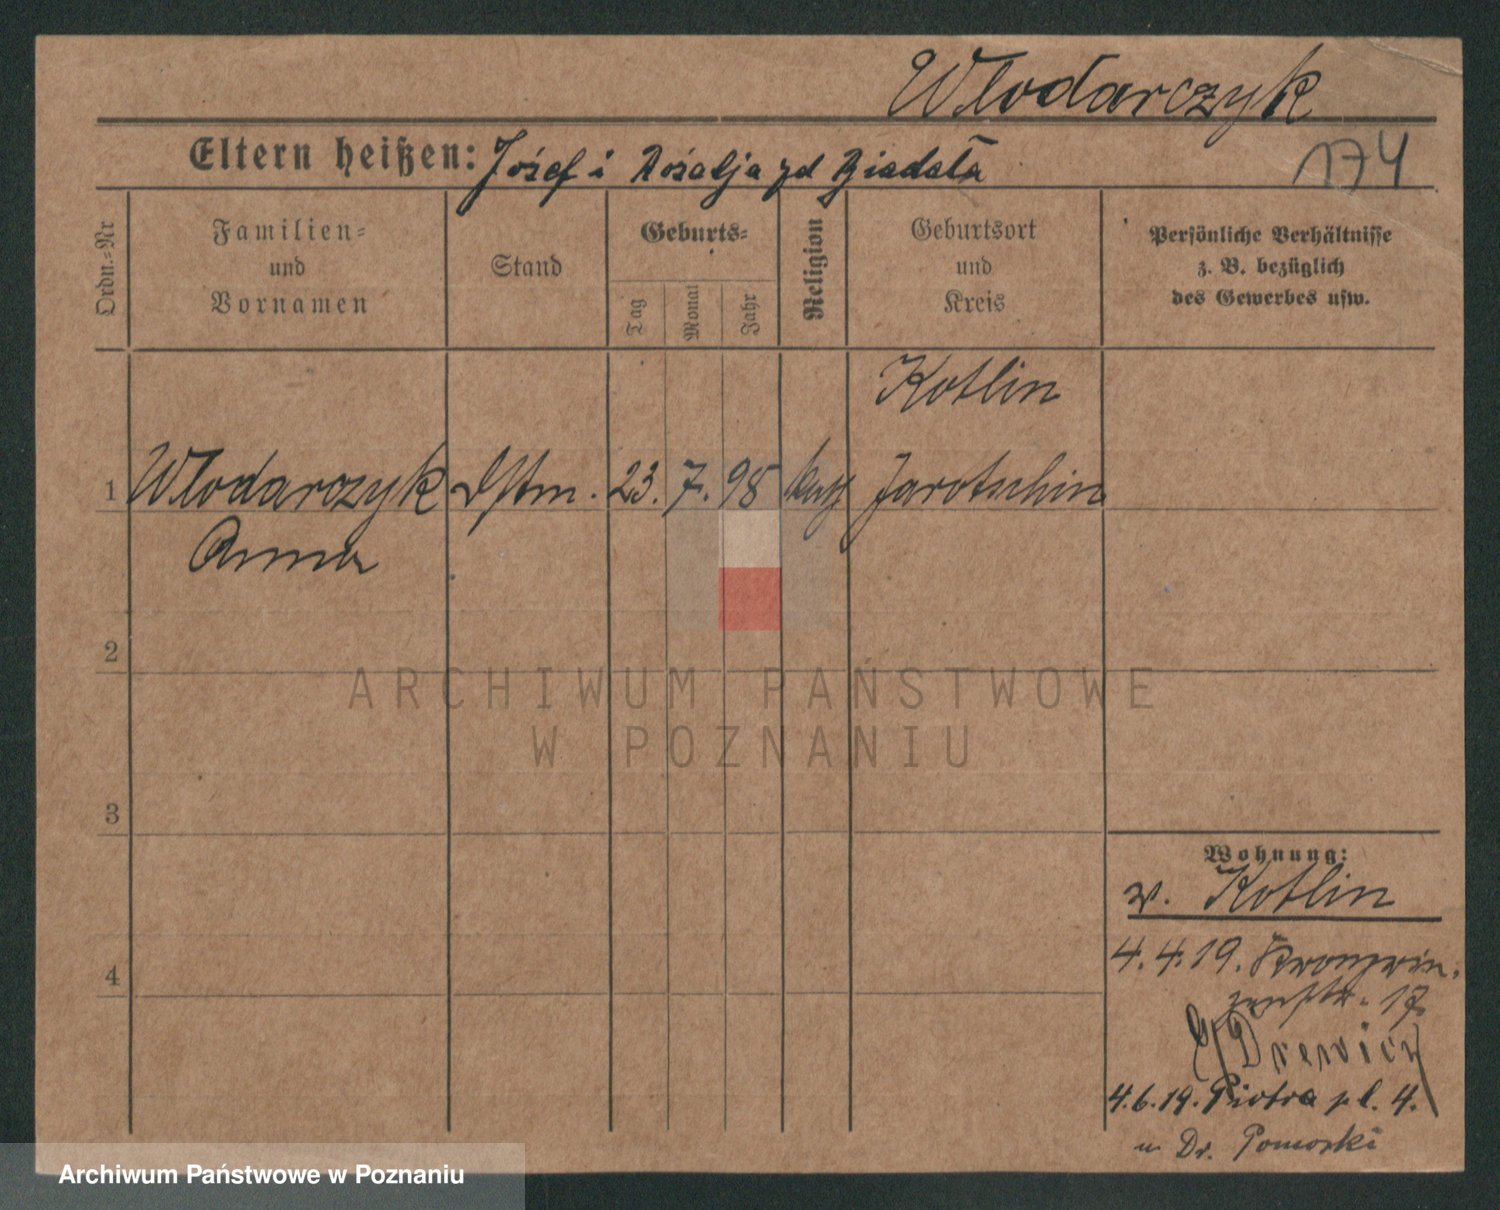 Włodarczyk
174
Eltern heißen: Józef i Rozalja zd Biadała
Ordn.=Nr
Familien=
und
Vornamen
Stand
Geburts=
Tag
Monat
Jahr
Religion
Geburtsort
und
Kreis
Persönliche Verhältnisse
z. B. bezüglich
des Gewerbes usw.
Kotlin
1 Włodarczyk Dstm. 23. 7. 98 kath Jarotschin
Anna
2
3
4
ARCHIWUM PAŃSTWOWE
W POZNANIU
Wohnung:
v. Kotlin
4.4.19. Kronprin.
zenstr. 17
b/ Drewicz
4.6.19. Piotra pl. 4.
u Dr. Pomorski
Archiwum Państwowe w Poznaniu